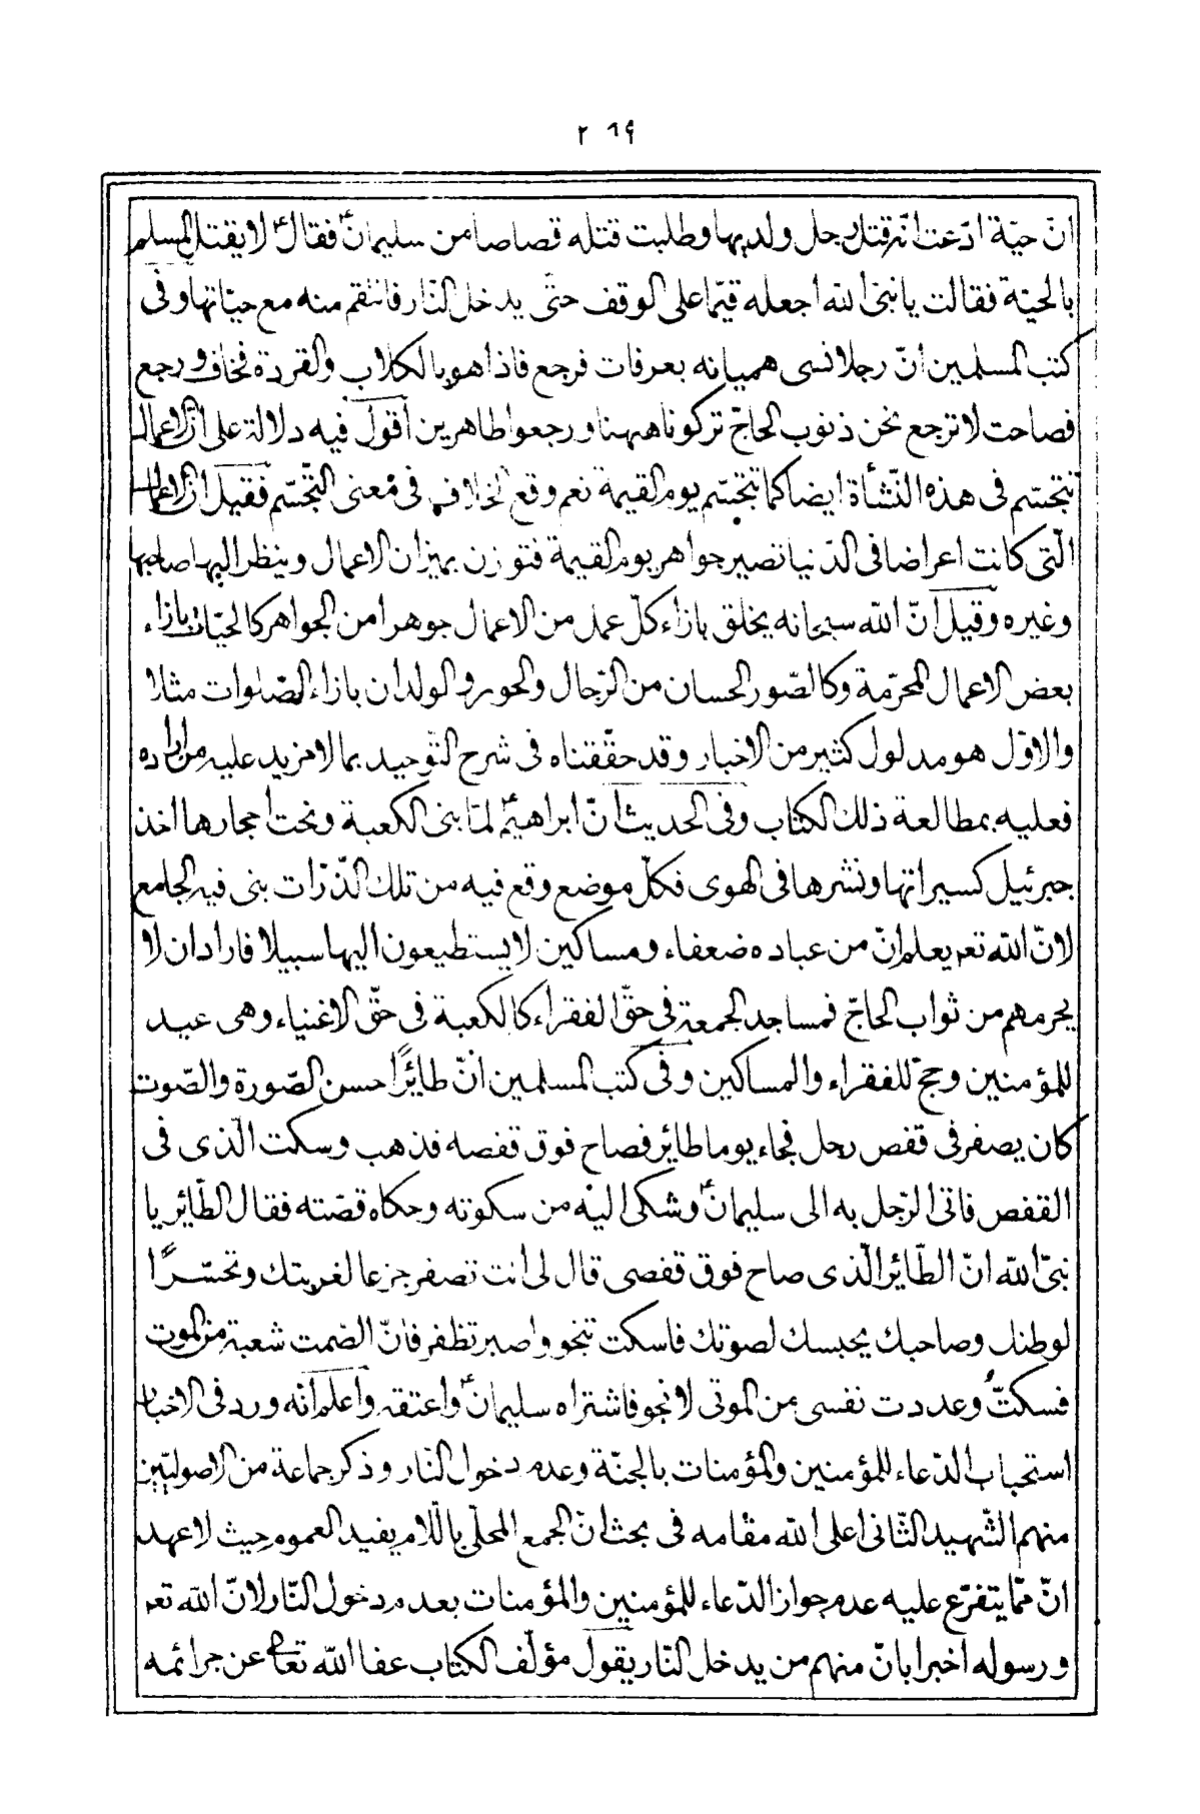 ٢٦٩
انّ حيّة ادّعت انّه قتل رجل ولديها وطلبت قتله قصاصا من سليمانؑ فقالؑ لا يقتل المسلم
بالحيّة فقالت يا نبىّ الله اجعله قيّما على الوقف حتّى يدخل النّار فانتقم منه مع حيّاتها وفى
كتب المسلمين انّ رجلا نسى هميانه بعرفات فرجع فاذا هو بالكلاب والقردة فخاف ورجع
فصاحت لا ترجع نحن ذنوب الحاجّ تركونا ههنا ورجعوا طاهرين أقول فيه دلالة على انّ الاعمال
تتجسّم فى هذه النّشأة ايضا كما تتجسّم يوم القيمة نعم وقع الخلاف فى معنى التجسّم فقيل انّ الاعمال
الّتى كانت اعراضا فى الدّنيا تصير جواهر يوم القيمة فتوزن بميزان الاعمال وينظر اليها صاحبها
وغيره وقيل انّ الله سبحانه يخلق بازاء كلّ عمل من الاعمال جوهرا من الجواهر كالحيّات بازاء
بعض الاعمال المحرّمة وكالصّور الحسان من الرّجال والحور والولدان بازاء الصّلوات مثلا
والاوّل هو مدلول كثير من الاخبار وقد حقّقناه فى شرح التّوحيد بما لا مزيد عليه من اراده
فعليه بمطالعة ذلك الكتاب وفى الحديث انّ ابراهيمؑ لمّا بنى الكعبة ونحت احجارها اخذ
جبرئيل كسيراتها ونثرها فى الهوى فكلّ موضع وقع فيه من تلك الذّرّات بنى فيه الجامع
لانّ الله تعم يعلم انّ من عباده ضعفاء ومساكين لا يستطيعون اليها سبيلا فاراد ان لا
يحرمهم من ثواب الحاجّ فمساجد الجمعة فى حقّ الفقراء كالكعبة فى حقّ الاغنياء وهى عيد
للمؤمنين وحجّ للفقراء والمساكين وفى كتب المسلمين انّ طائرًا حسن الصّورة والصّوت
كان يصفر فى قفص رجل فجاء يوما طائر فصاح فوق قفصه فذهب وسكت الّذى فى
القفص فاتى الرّجل به الى سليمانؑ وشكى اليه من سكوته وحكاه قصّته فقال الطّائر يا
نبىّ الله انّ الطّائر الّذى صاح فوق قفصى قال لى انت تصفر جزعا لغربتك وتحسّرًا
لوطنك وصاحبك يحبسك لصوتك فاسكت تنجو واصبر تظفر فانّ الصّمت شعبة من الموت
فسكتُّ وعددت نفسى من الموتى لانجو فاشتراه سليمانؑ واعتقه واعلم انّه ورد فى الاخبار
استحباب الدّعاء للمؤمنين والمؤمنات بالجنّة وعدم دخول النّار وذكر جماعة من الاصوليّين
منهم الشّهيد الثّانى اعلى الله مقامه فى بحث انّ الجمع المحلّى باللّام يفيد العموم حيث لا عهد
انّ ممّا يتفرّع عليه عدم جواز الدّعاء للمؤمنين والمؤمنات بعدم دخول النّار لانّ الله تعم
ورسوله اخبرا بانّ منهم من يدخل النّار يقول مؤلّف الكتاب عفا الله تعالى عن جرائمه